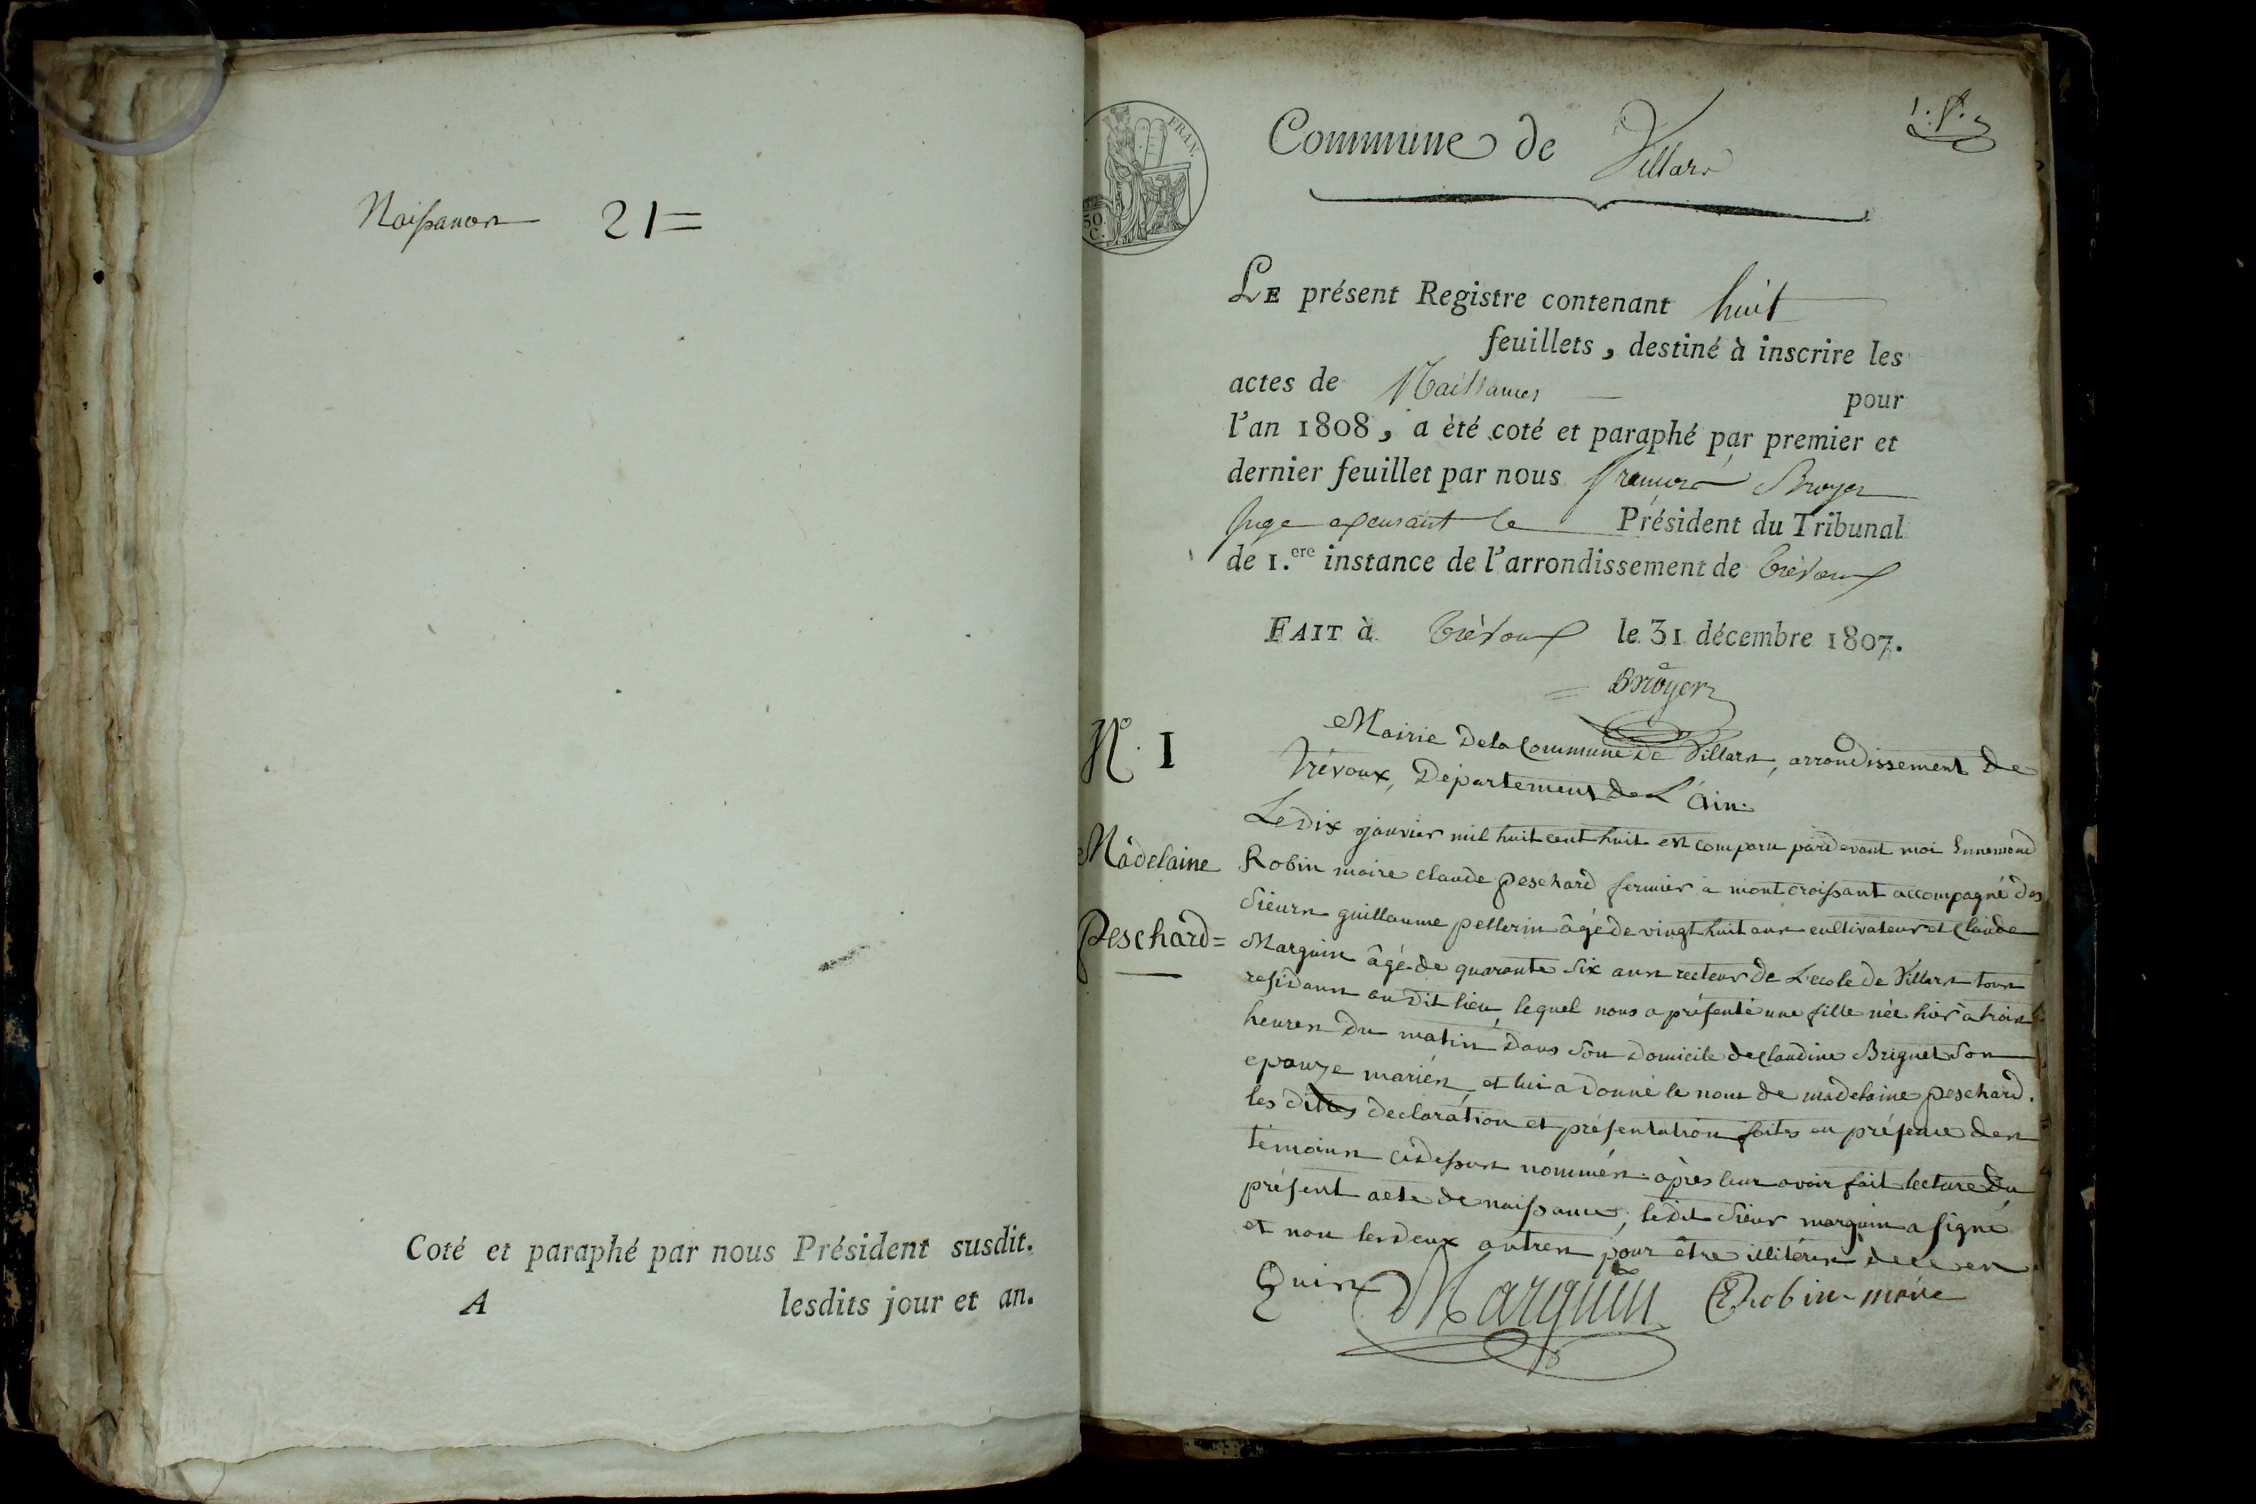 Naissances 21=
Coté et paraphé par nous Président susdit.
A lesdits jour et an.
FRAN.
50.
C.
Commune de Villars
Le présent Registre contenant huit
feuillets, destiné à inscrire les
actes de Naissances pour
l'an 1808, a été coté et paraphé par premier et
dernier feuillet par nous Broyer
Juge Président du Tribunal
de 1.ere instance de l'arrondissement de Trévoux
Fait à Trévoux le 31 décembre 1807.
Broyer
N.º 1
Madelaine
Peschard=
Mairie dela Commune de Villars, arrondissement de
Trévoux, Département de L'Ain.
Le dix janvier mil huit cent huit est comparu pardevant moi Ennemond
Robin maire claude peschard fermier à montcroissant accompagné des
Sieurs guillaume pellerin âgé de vingt huit ans cultivateur et Claude
Marguin âgé de quarante six ans recteur de L'ecole de Villars tous
residans audit lieu, lequel nous a présenté une fille née hier à trois
heures du matin, dans son domicile de claudine Briguet son
epouze mariés, et lui a donné le nom de madelaine peschard.
les dites declaration et présentation faites en présence des
témoins cidessus nommés. après leur avoir fait lecture du
présent acte de naissance, ledit Sieur marguin a signé
et non les deux autres pour être illitérés de ce en
Quis Marguin E Robin maire